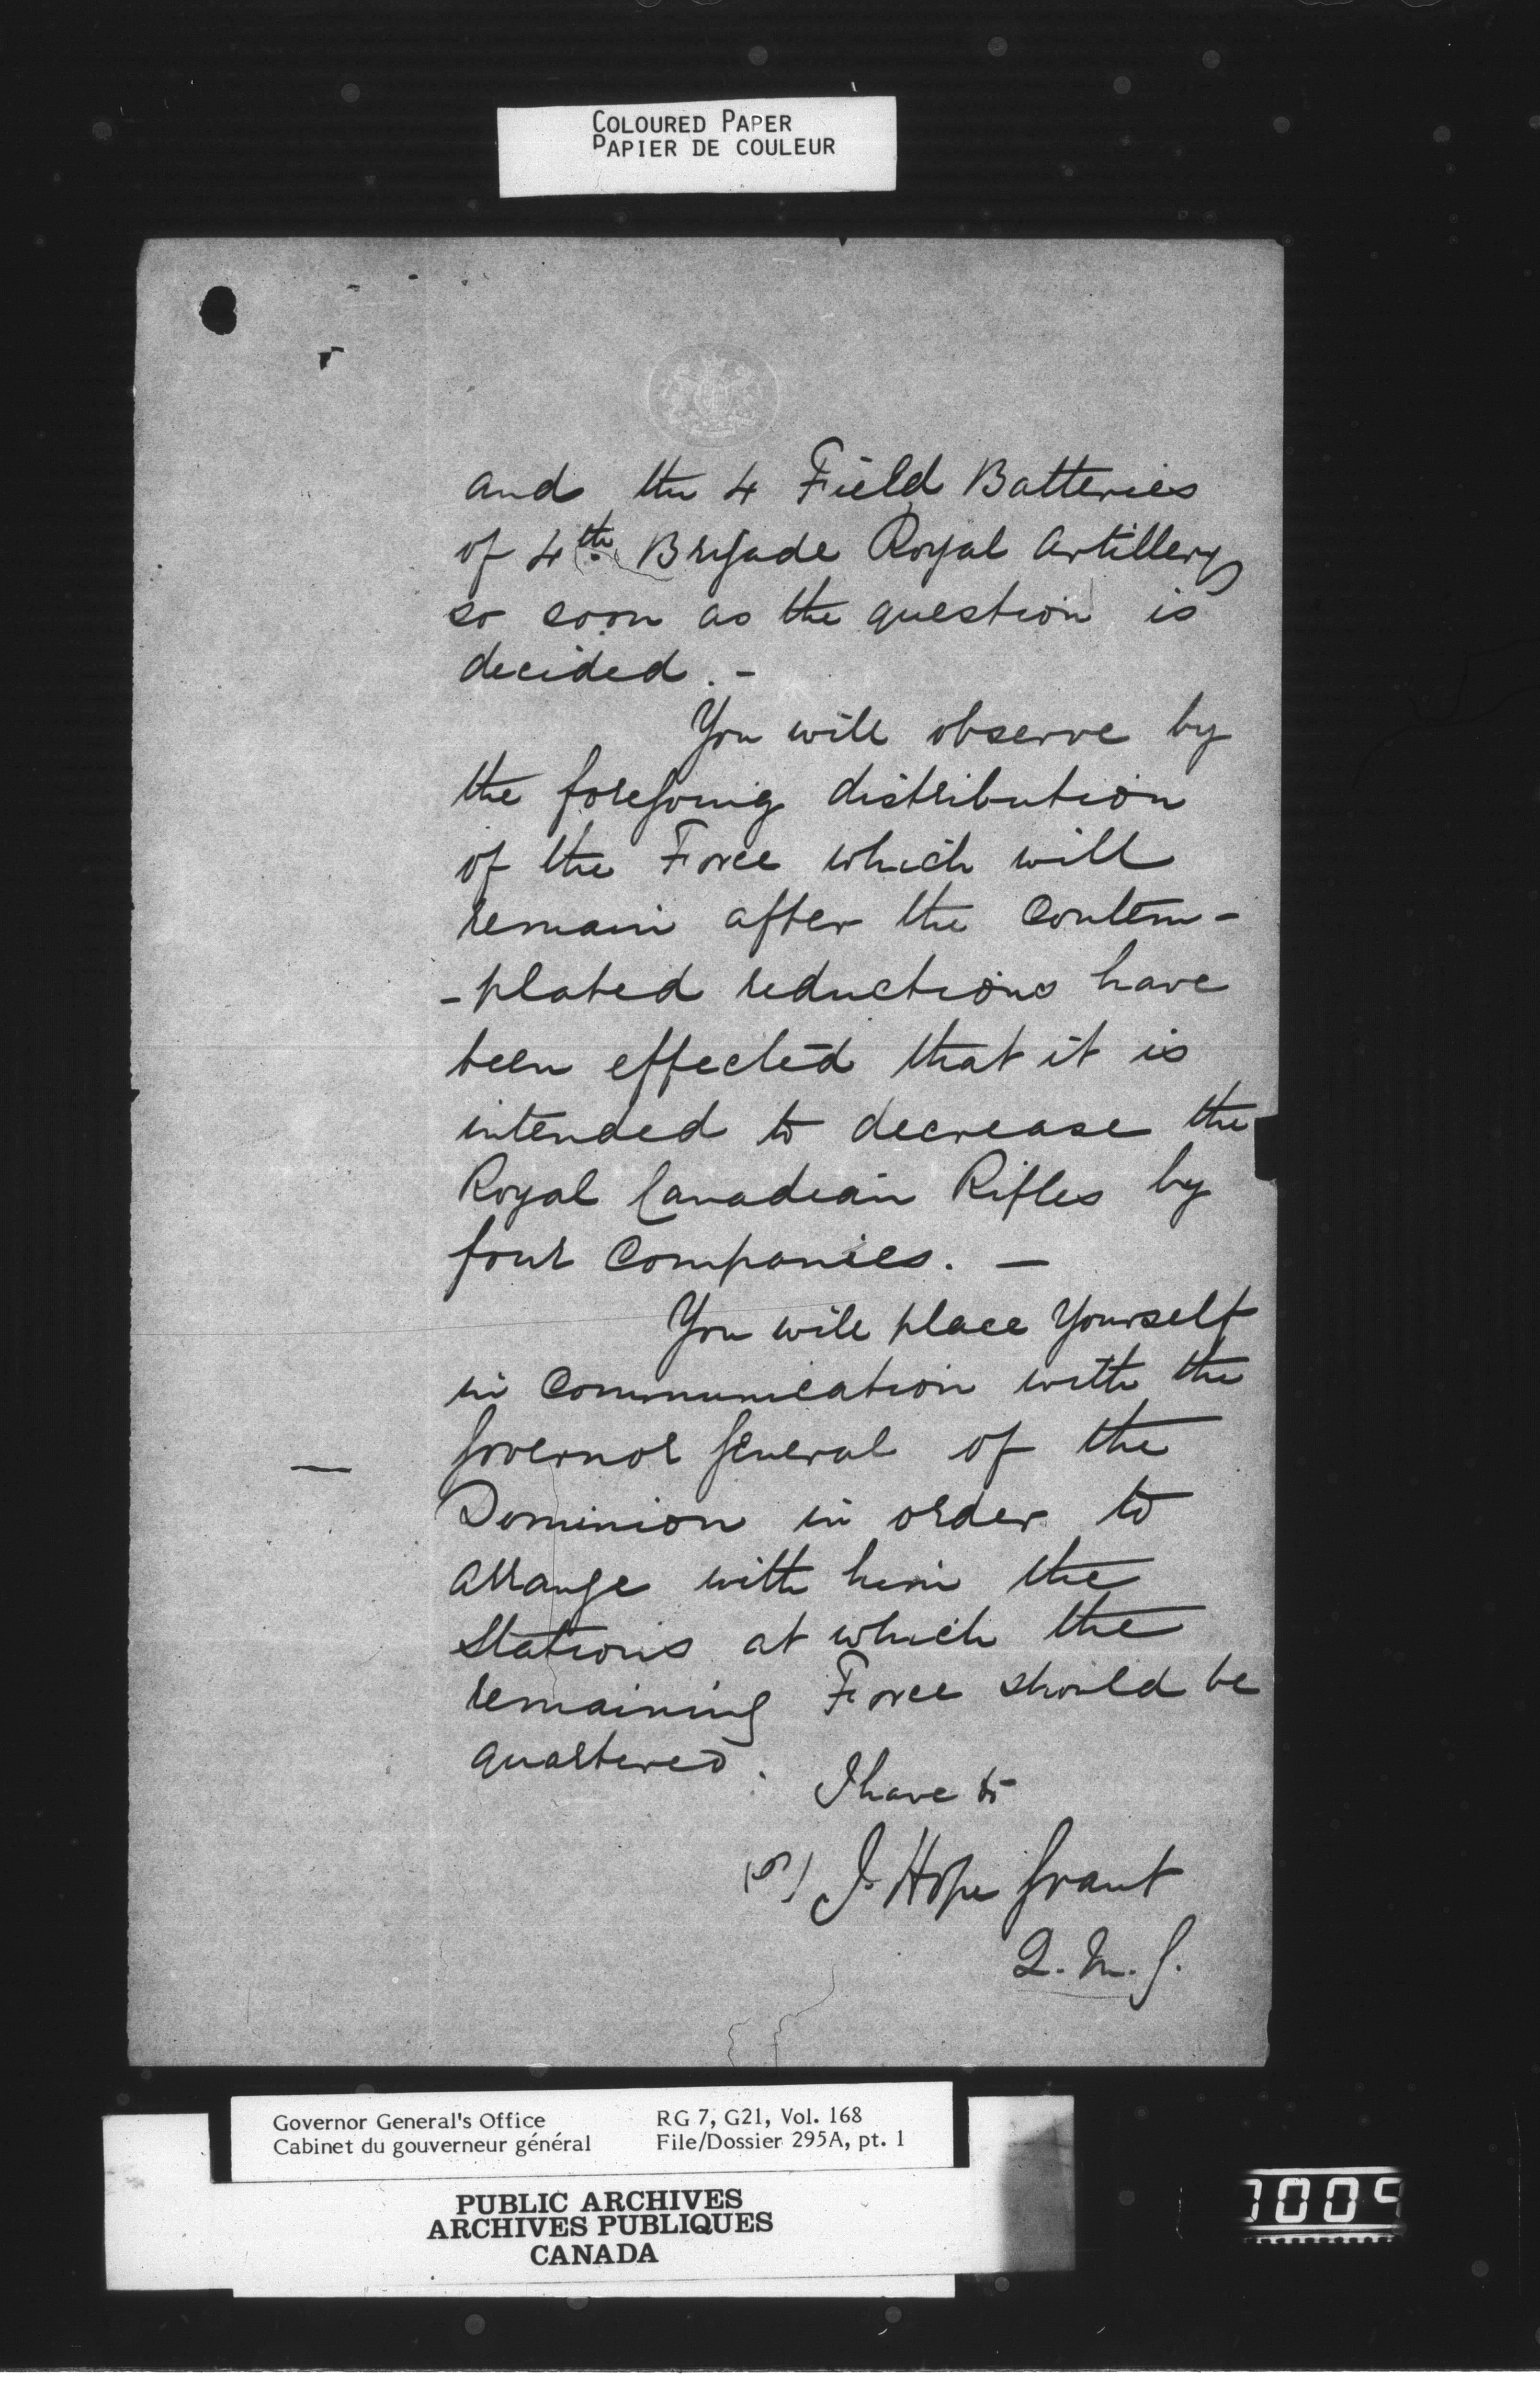 COLOURED PAPER
PAPIER DE COULEUR
and the 4 Field Batteries
of 4th Brigade Royal Artillery
so soon as the question is
decided. -
You will observe by
the foregoing distribution
of the Force which will
remain after the Contem-
-plated reductions have
been effected that it is
intended to decrease the
Royal Canadian Rifles by
four Companies. -
You will place Yourself
in Communication with the
Governor General of the
Dominion in order to
arrange with him the
Stations at which the
remaining Force should be
quartered. I have &c
(S) J. Hope Grant
Q. M. G.
Governor General's Office RG 7, G21, Vol. 168
Cabinet du gouverneur général File/Dossier 295A, pt. 1
PUBLIC ARCHIVES
ARCHIVES PUBLIQUES
CANADA